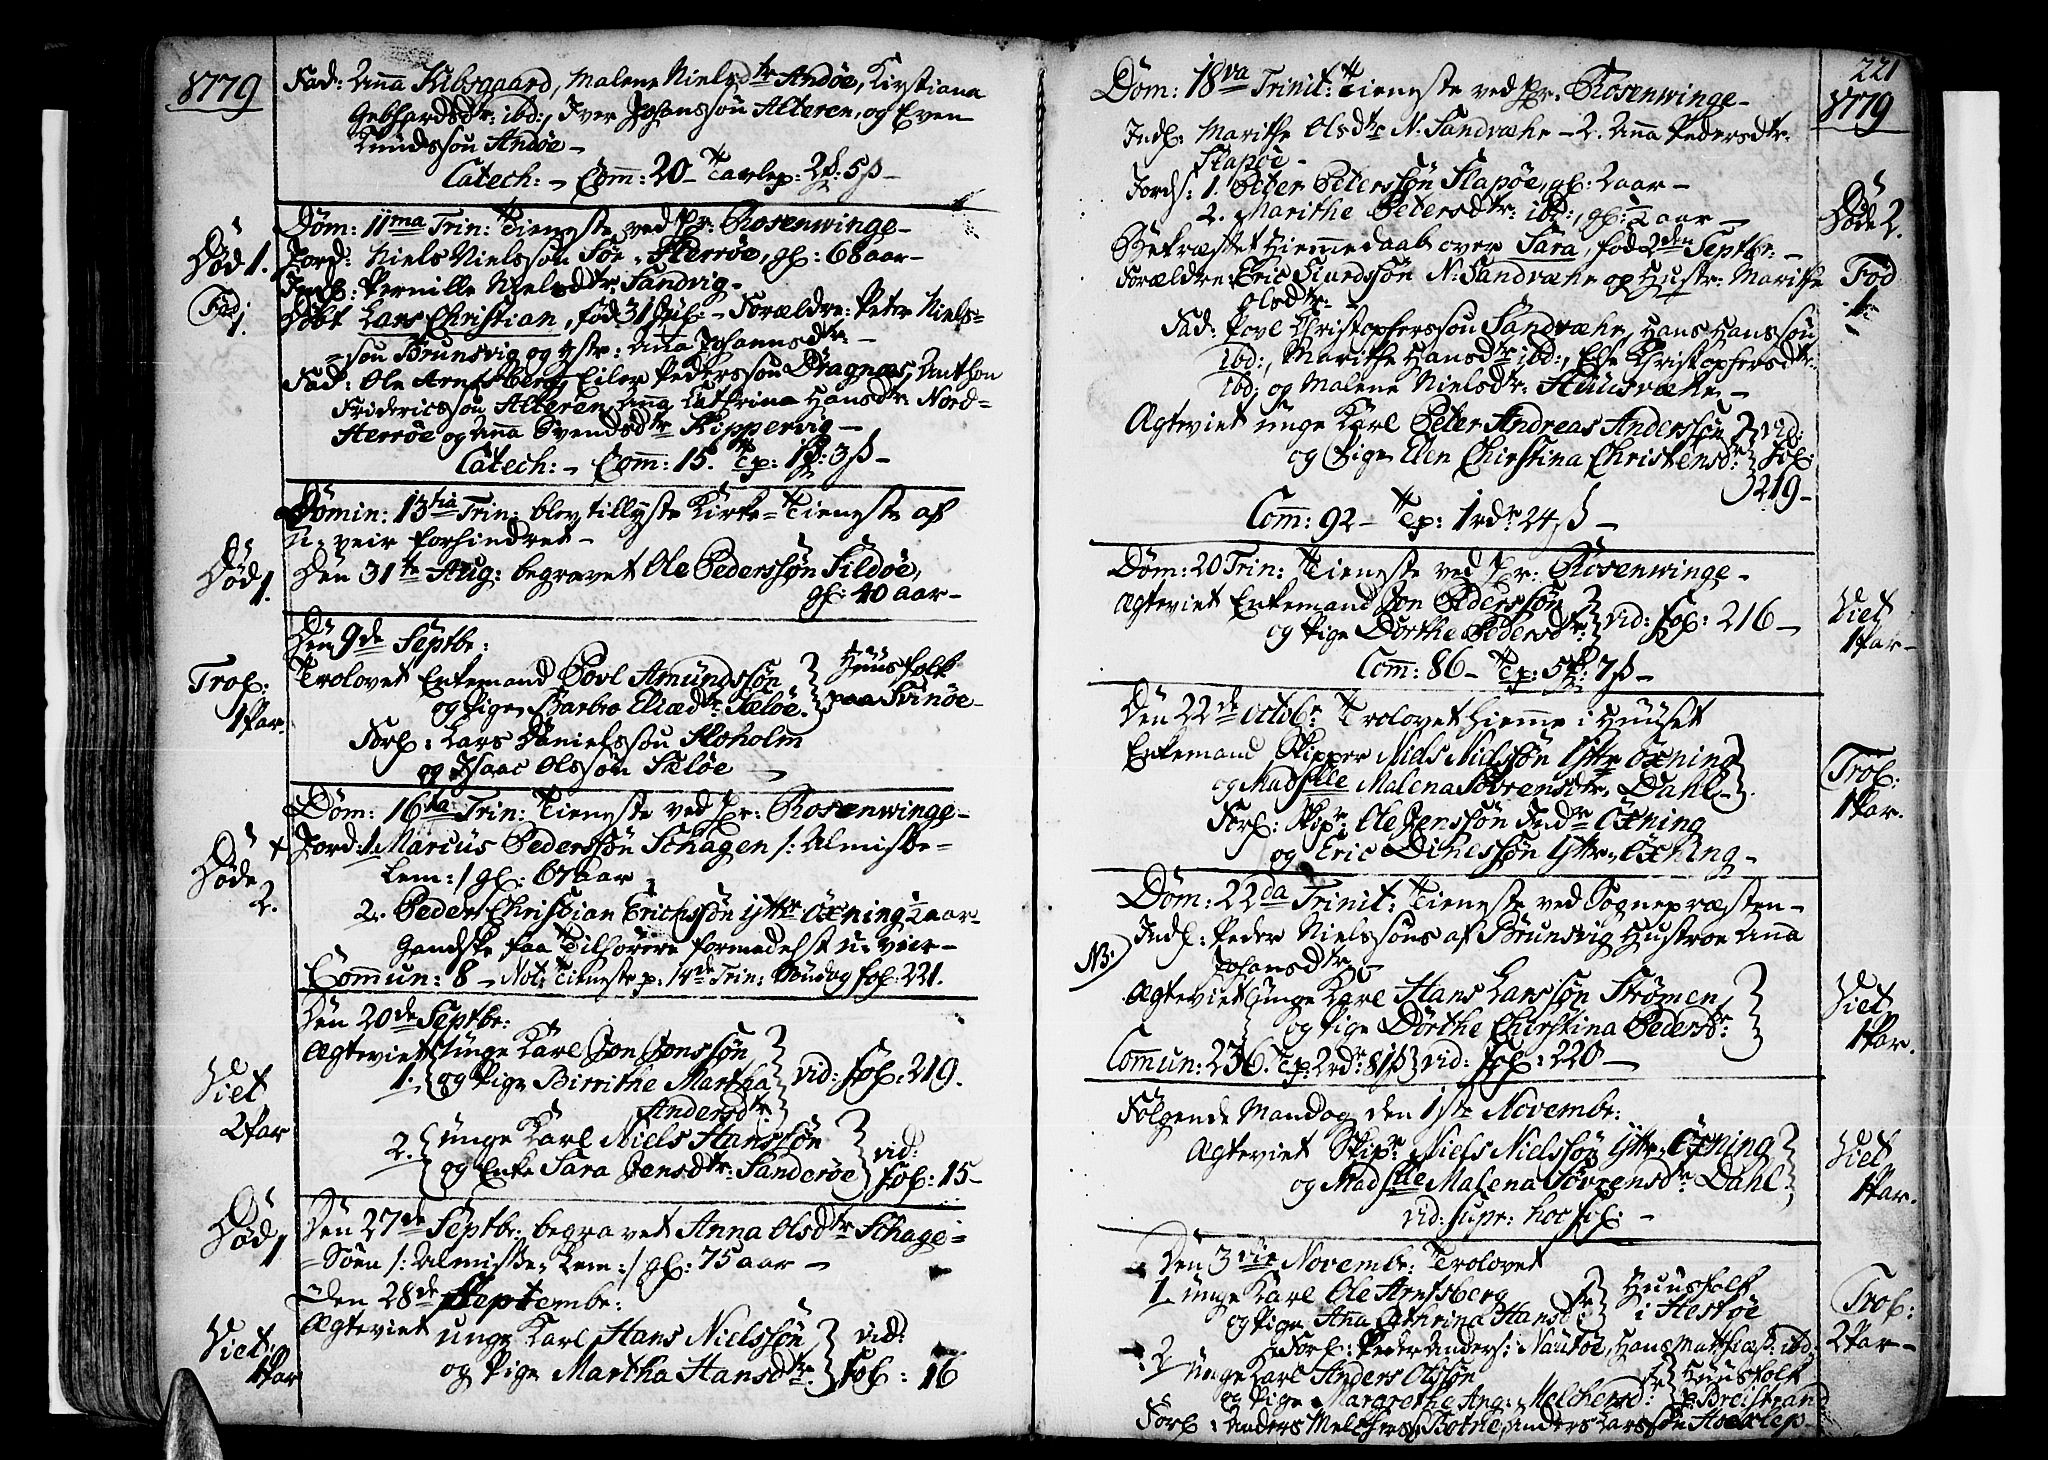 1779
Fad: Anna Kibsgaard, Malene Nielsdtr Andøe, Kirstiana
Gebhardsdtr: ibd:, Iver Johanssøn Alteren, og Even
Knudssøn Andøe –
Catech: – Com: 20 – Tavlep: 2 5 s –
Dom: 11ma Trin: Tieneste ved Hr: Rosenwinge –
Død 1.
Jord: Niels Nielssøn Sør-Herrøe, gl: 68 aar –
Indl: Pernille Nielsdtr: Sandvig –
Fød 1.
Døbt Lars Christian, fød 31 Jul: – Forældre: Peter Niels=
=søn Brunsvig og Hstr: Ana Johansdtr: –
Fad: Ole Arntsberg, Eiler Pederssøn Dragnæs, Anthon
Fridericssøn Alteren, Anna Cathrina Hansdtr: Nord=
Herrøe og Anna Svendsdtr Skippervig –
Catech: – Com: 15. Tp: 1 3 s –
Domin: 13tia Trin: blev tillyste Kirke-Tieneste af
U-veir forhindret –
Død 1.
Den 31te Aug: begravet Ole Pederssøn Sildøe,
gl: 40 aar –
Den 9de Septbr:
Trol: 1 Par.
Trolovet Enkemand Povl Amundssøn
og Pige Barbro Eliædtr Sæløe.
Huusfolk
paa Svinøe –
Forl: Lars Danielssøn Aloholm
og Isaac Olssøn Sæløe –
Dom: 16ta Trin: Tieneste ved Hr: Rosenwinge –
Døde 2.
Jord: 1. Marcus Pederssøn Schagen /: Almisse=
Lem :/ gl: 67 aar
2. Peder Christian Erichssøn Yttr Øxning ½ aar –
Gandske faa Tilhørere formedelst u-veir –
Commun: 8 – Not: Tieneste p: 14de Trin: Søndag fol: 221.
Den 20de Septbr:
Viet 2 Par
Ægteviet unge Karl Jon Jonssøn
1. og Pige Birrithe Martha
Andersdtr
vid: fol: 219.
2. unge Karl Niels Hanssøn
og Enke Sara Jensdtr: Sanderøe
vid:
fol: 15 –
Død 1
Den 27de Septbr: begravet Anna Olsdtr Schage=
=Søen /: Almisse-Lem :/ gl: 75 aar –
Den 28de Septembr:
Viet: 1 Par
Ægteviet unge Karl Hans Nielssøn
og Pige Martha Hansdtr
vid:
fol: 16
221
1779
Dom: 18va Trinit: Tieneste ved Hr: Rosenwinge –
Indl: Marithe Olsdtr N: Sandvæhr – 2. Anna Pedersdtr:
Slapøe –
Døde 2.
Jords: 1. Peter Peterssøn Slapøe, gl: 2 aar –
2. Marithe Petersdtr: ibd:, gl: ½ aar –
Bekræftet Hiemmedaab over Sara, fød 2den Septbr: –
Fød 1.
Forældre Eric Siurdssøn N: Sandvæhr og Hustr: Marithe
Olsdtr: –
Fad: Povl Christopherssøn Sandvæhr, Hans Hanssøn
ibd:, Marithe Hansdtr ibd:, Else Christophersdtr:
ibd: og Malene Nielsdtr: Huusvæhr –
Ægteviet unge Karl Peter Andreas Anderssøn
og Pige Elen Chirstina Christensdr:
vid:
fol:
219 –
Com: 92 – Tp: 1 rdr 24 s –
Dom: 20 Trin: Tieneste ved Hr: Rosenwinge –
Viet 1 Par –
Ægteviet Enkemand Jon Pederssøn
og Pige Dorthe Pedersdtr:
vid: fol: 216 –
Com: 86 – Tp: 5 7 s –
Den 22de Octobr: Trolovet hiemme i Huuset
Trol: 1 Par.
Enkemand Skipper Niels Nielssøn Yttr Øxning
og Madselle Malena Sørensdtr. Dahl –
Forl: Skipr Ole Jenssøn Indr Øxning
og Eric Dinessøn Yttr: Øxning –
Dom: 22da Trinit: Tieneste ved Sognepræsten –
Indl: Peder Nielssøns af Brunsvig Hustroe Anna
NB:
Johansdtr –
Viet 1 Par.
Ægteviet unge Karl Hans Larssøn Strømen,
og Pige Dorthe Chirstina Pedersdr:
Commun: 236. Tp: 2 rdr 81 s vid: fol: 220 –
Følgende Mandag den 1ste Novembr:
Viet 1 Par.
Ægteviet Skipr: Niels Nielssøn Yttr: Øxning
og Madselle Malena Sørensdr Dahl –
vid: supr: hoc fol: –
Den 3die Novembr: Trolovet
Trol: 2 Par –
1 unge Karl Ole Arntsberg
og Pige Ana Cathrina Hansdr
Huusfolk
i Hestøe
Forl: Peder Anders: Nautøe, Hans Matthiæs: ibd:
2 unge Karl Anders Olssøn
og Pige Margrethe Ang: Melchersdr:
Huusfolk
p: Breistrand
Forl: Anders Melcherss: Bothe, Anders Larssøn